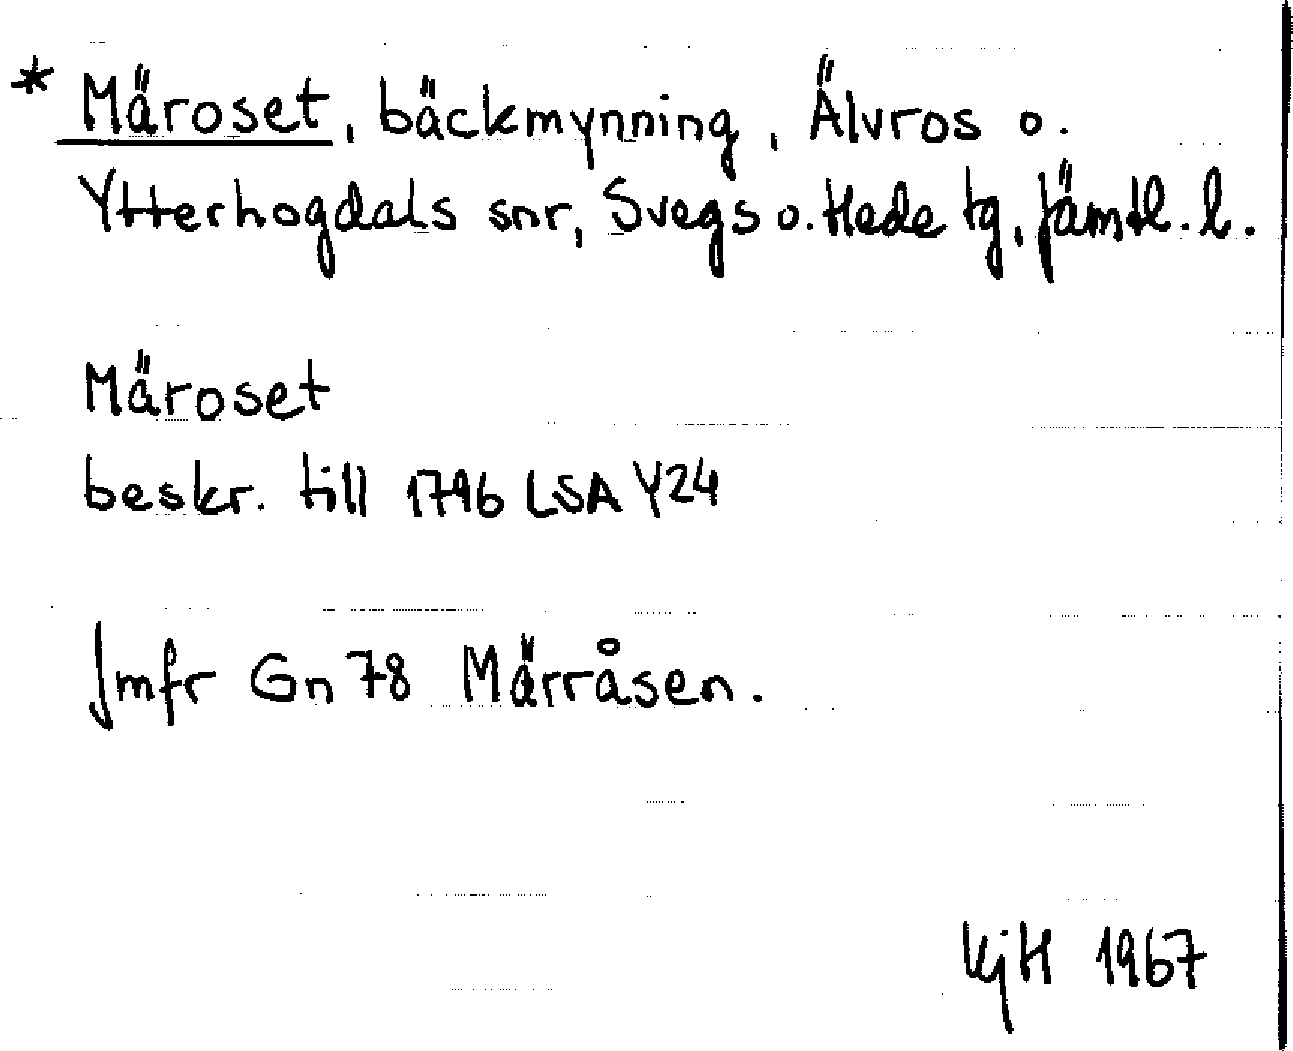 * Märoset, bäckmynning, Älvros o.
Ytterhogdals snr, Svegs o. Hede tg, Jämtl. l.
Märoset
beskr. till 1796 LSA Y24
Jmfr Gn 78 Märråsen.
KjH 1967